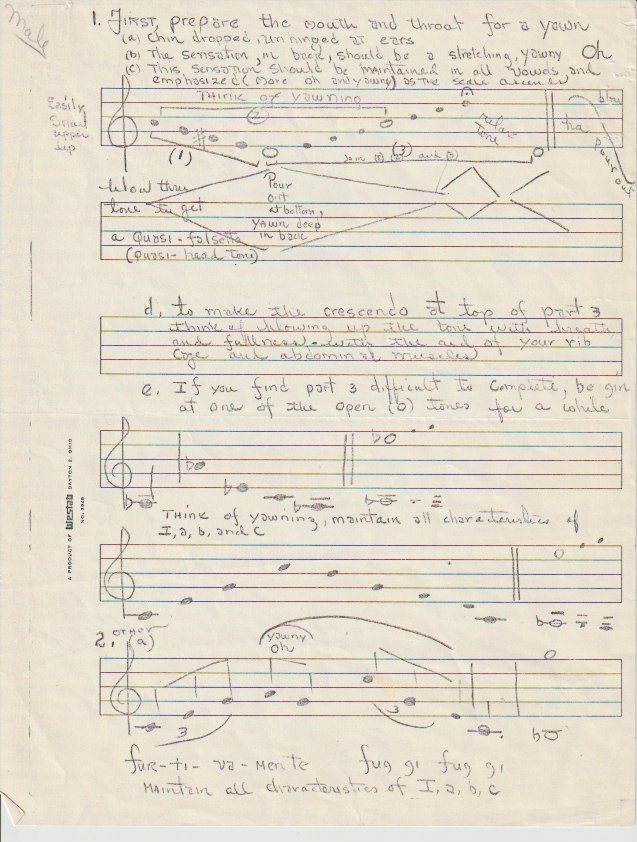 Male
1. First, prepare the mouth and throat for a yawn
(a) Chin dropped, unhinged at ears
(b) The sensation, in back, should be a stretching, yawny Oh
(c) This sensation should be maintained in all vowels and
emphasized (more oh and yawny) as the scale ascends
Easily
Snarl
upper
lip
Think of yawning
(2)
relax
tone
ha
blru
pour out
(1)
Join (1) (2) and (3)
(3)
blow thru
tone to get
a quasi-falsetto
(quasi-head tone)
Pour
out
at bottom,
yawn deep
in back
d. to make the crescendo at top of part 3
think of blowing up the tone with breath
and fullness - with the aid of your rib
cage and abdominal muscles
e. If you find part 3 difficult to complete, begin
at one of the open (o) tones for a while
Think of yawning, maintain all characteristics of
I, a, b, and c
2. other (a)
yawny
Oh
3
3
fur-ti-va-mente fug gi fug gi
Maintain all characteristics of I, a, b, c
A PRODUCT OF Westab DAYTON 2, OHIO